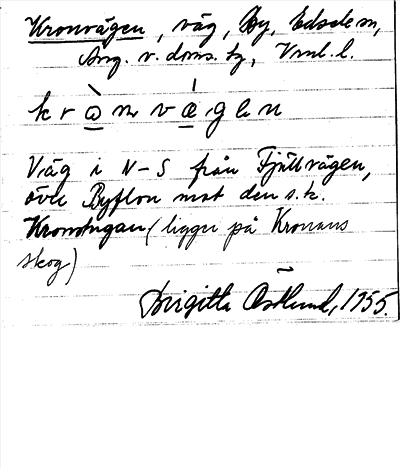 Kronvägen, väg, By, Edsslem,
Ang. v. doms. hg, Vrml. l.
k r o n v ä g e n
Väg i N-S från Fjällvägen,
över Byflon mot den s.k.
Kronstugan (ligger på Kronans
skog)
Birgitta Östlund, 1955.